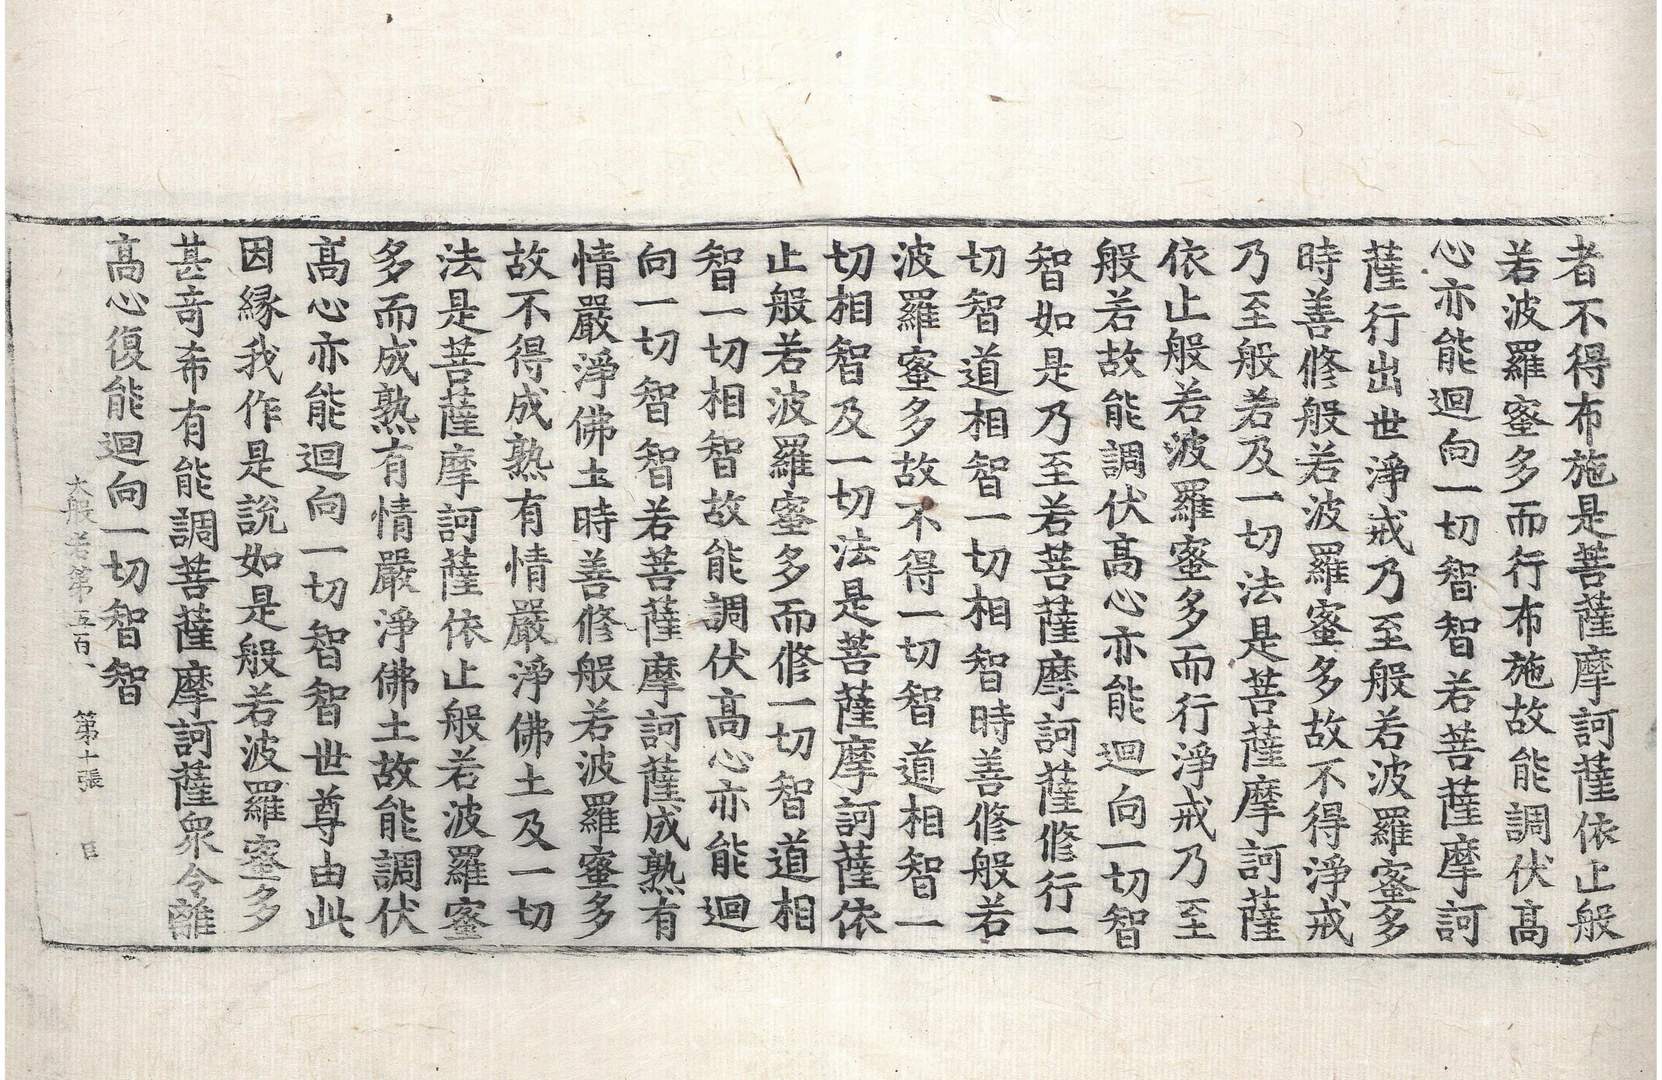 者不得布施是菩薩摩訶薩依止般
若波羅蜜多而行布施故能調伏髙
心亦能迴向一切智智若菩薩摩訶
薩行出世淨戒乃至般若波羅蜜多
時善修般若波羅蜜多故不得淨戒
乃至般若及一切法是菩薩摩訶薩
依止般若波羅蜜多而行淨戒乃至
般若故能調伏髙心亦能迴向一切智
智如是乃至若菩薩摩訶薩修行一
切智道相智一切相智時善修般若
波羅蜜多故不得一切智道相智一
切相智及一切法是菩薩摩訶薩依
止般若波羅蜜多而修一切智道相
智一切相智故能調伏髙心亦能迴
向一切智智若菩薩摩訶薩成熟有
情嚴淨佛土時善修般若波羅蜜多
故不得成熟有情嚴淨佛土及一切
法是菩薩摩訶薩依止般若波羅蜜
多而成熟有情嚴淨佛土故能調伏
髙心亦能迴向一切智智世尊由此
因縁我作是說如是般若波羅蜜多
甚奇希有能調菩薩摩訶薩衆令離
髙心復能迴向一切智智
大般若第五百一 第十張